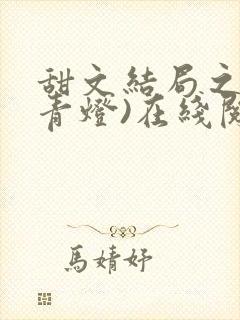 甜文結局之
青燈)在綫閱
馬婧妤